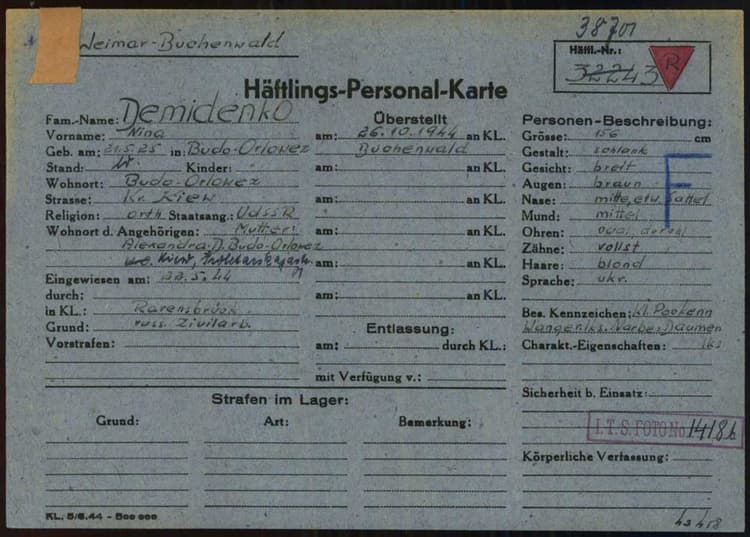 Weimar-Buchenwald
38701
Häftl.-Nr.:
32243
R
Häftlings-Personal-Karte
Fam.-Name: Demidenko
Vorname: Nina
Geb. am: 21.5.25 in: Budo-Orlowez
Stand: Kinder:
Wohnort: Budo-Orlowez
Strasse: Kr. Kiew
Religion: orth. Staatsang.: UdSSR
Wohnort d. Angehörigen: Mutter:
Alexandra D. Budo-Orlowez
Kiew,
Eingewiesen am: 22.5.44
durch:
in KL.: Ravensbrück
Grund: russ. Zivilarb.
Vorstrafen:
Überstellt
am: 26.10.1944 an KL.
Buchenwald
am: an KL.
am: an KL.
am: an KL.
am: an KL.
am: an KL.
Entlassung:
am: durch KL.:
mit Verfügung v.:
Personen-Beschreibung:
Grösse: 156 cm
Gestalt: schlank
Gesicht: breit
Augen: braun
Nase: mitte, etw. Sattel
Mund: mittel
Ohren: oval,
Zähne: vollst
Haare: blond
Sprache: ukr.
F
Bes. Kennzeichen: kl. Pockenn
Wange r. lks. Narbe: Daumen
Charakt.-Eigenschaften: lks
Sicherheit b. Einsatz:
I.T.S. FOTO No 14186
Körperliche Verfassung:
Strafen im Lager:
Grund: Art: Bemerkung:
KL. 5/6.44 - 500 000